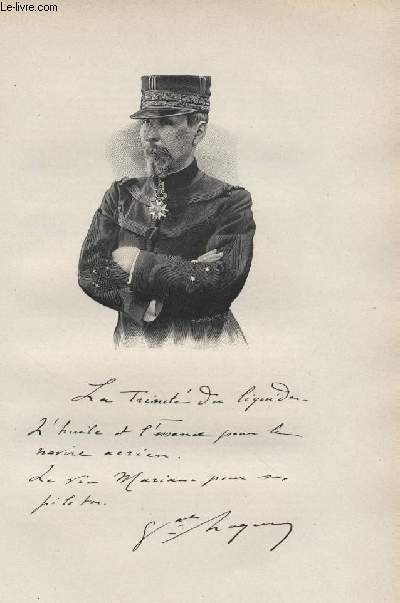 Le-livre.com
La Trinité du légendes
L'huile et l'essence pour le
navire aerien.
Le vin Mariani pour ses
pilotes.
Gal